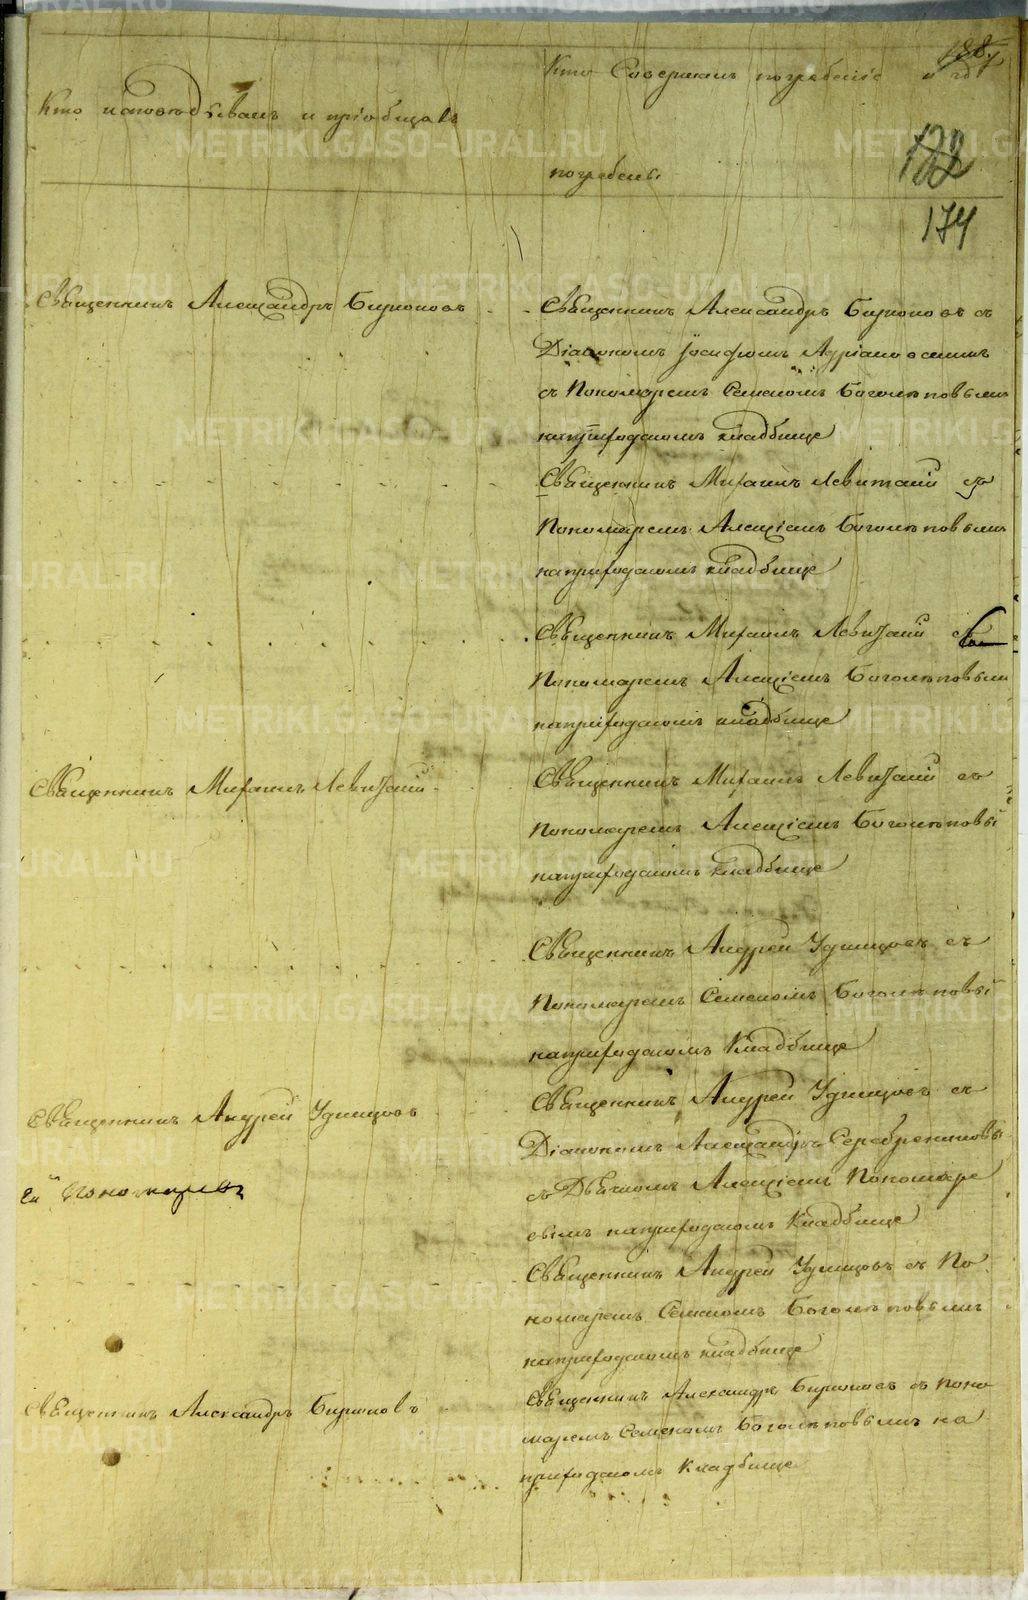 188
Кто совершалъ погребеніе и гдѣ
Кто исповѣдывалъ и пріобщалъ
122
погребены
174
Священникъ Александръ Бирюковъ
Священникъ Александръ Бирюковъ съ
Діакономъ Іосифомъ Адріановскимъ
съ Пономаремъ Семеномъ Боголѣповымъ
на приходскомъ кладбище
Священникъ Михаилъ Левитскій съ
Пономаремъ Алексіемъ Боголѣповымъ
на приходскомъ кладбище
Священникъ Михаилъ Левитскій съ
Пономаремъ Алексіемъ Боголѣповым
на приходскомъ кладбище
Священникъ Михаилъ Левитскій
Священникъ Михаилъ Левитскій съ
Пономаремъ Алексіемъ Боголѣповы
на приходскомъ кладбище
Священникъ Андрей Удинцовъ съ
Пономаремъ Семеномъ Боголѣповы
на приходскомъ Кладбище
Священникъ Андрей Удинцовъ
Священникъ Андрей Удинцовъ съ
Діакономъ Александръ Серебрениковы
съ Дьячкомъ Алексіемъ Пономаре
вымъ на приходскомъ Кладбище
Священникъ Андрей Удинцовъ съ По
номаремъ Семеномъ Боголѣповымъ
на приходскомъ кладбище
Священникъ Александръ Бирюковъ
Священникъ Александръ Бирюковъ съ Поно
маремъ Семеномъ Боголѣповымъ на
приходскомъ Кладбище
METRIKI.GASO-URAL.RU